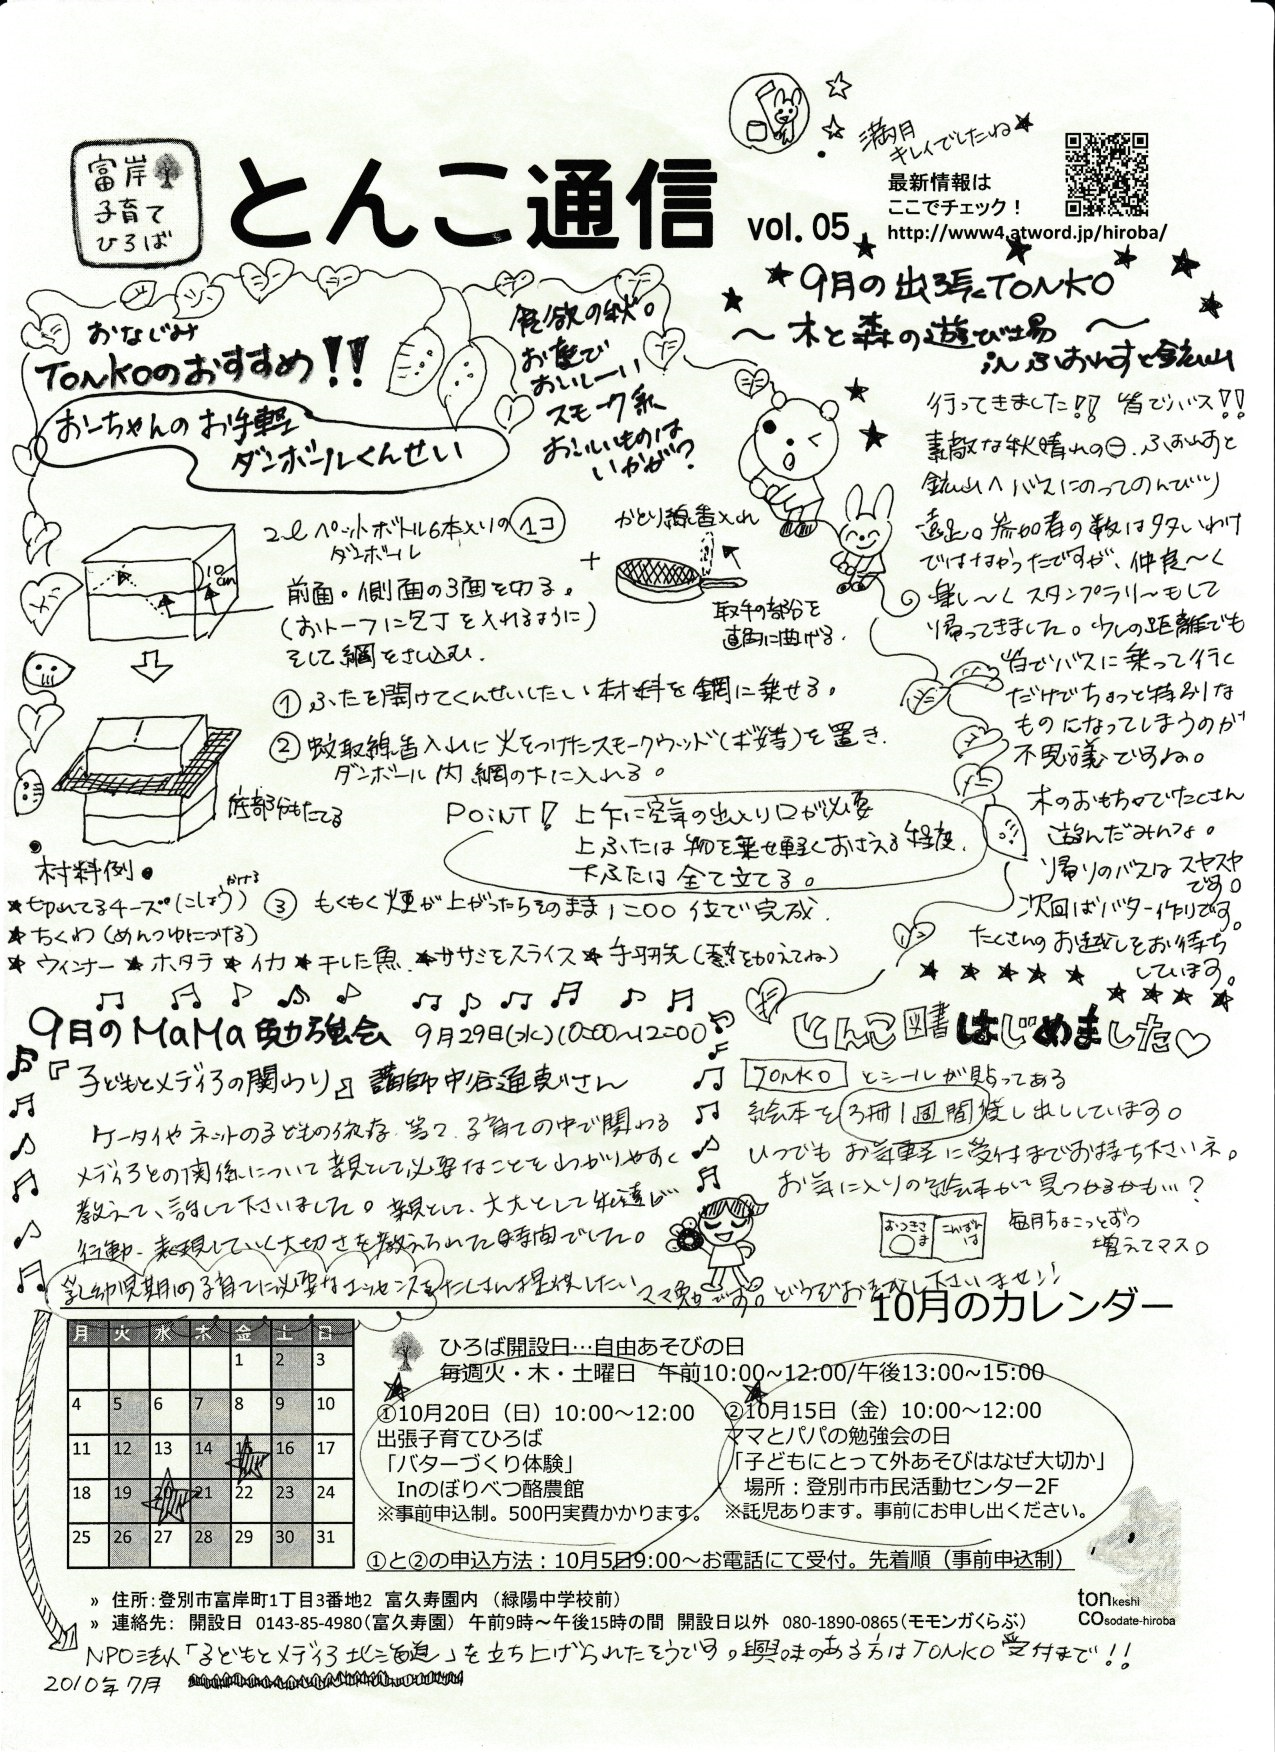 富岸
子育て
ひろば
とんこ通信 vol. 05
満月
キレイでしたね
最新情報は
ここでチェック！
http://www4.atword.jp/hiroba/
おなじみ
TONKOのおすすめ!!
おーちゃんのお手軽
ダンボールくんせい
食欲の秋。
お庭で
おいしーい
スモーク系
おいしいものは
いかが？
2ℓペットボトル6本入りの1コ
ダンボール
10cm
前面・側面の3面を切る。
(おトーフに包丁を入れるように)
そして網をさし込む。
+
かとり線香入れ
取手の部分を
直角に曲げる。
①ふたを開けてくんせいしたい材料を網に乗せる。
②蚊取線香入れに火をつけたスモークウッド(ギ)を置き、
ダンボール内網の下に入れる。
底部分もたてる
POINT! 上下に空気の出入り口が必要
上ふたは物を乗せ軽くおさえる程度。
下ふたは全て立てる。
材料例。
★切れてるチーズ(こしょうかける)
③もくもく煙が上がったらそのまま1:00位で完成。
★ちくわ(めんつゆにつける)
★ウィンナー★ホタテ★イカ★干した魚★ササミをスライス★手羽先(熱を加えてね)
9月の出張TONKO
～木と森の遊び場～
in ふぉれすと鉱山
行ってきました!! 皆でバス!!
素敵な秋晴れの日、ふぉれすと
鉱山へバスにのってのんびり
遠足。参加者の数は多いわけ
ではなかったですが、仲良～く
楽し～くスタンプラリーもして
帰ってきました。少しの距離でも
皆でバスに乗って行く
だけでちょっと特別な
ものになってしまうのが
不思議ですね。
木のおもちゃでたくさん
遊んだみんな。
帰りのバスはスヤスヤ
です。
次回はバター作りです。
たくさんのお越しをお待ち
しています。
9月のMaMa勉強会 9月29日(水)10:00～12:00
『子どもとメディアの関わり』講師中谷通恵さん
ケータイやネットの子どもの依存等で、子育ての中で関わる
メディアとの関係について親として必要なことをわかりやすく
教えて、話して下さいました。親として、大人として伝達し
行動、表現していく大切さを教えられた時間でした。
乳幼児期の子育てに必要なエッセンスをたくさん提供したいママ勉です。どうぞお越し下さいませ!!
とんこ図書はじめました♡
TONKOとシールが貼ってある
絵本を3冊1週間貸し出ししています。
いつでもお気軽に受付までお持ち下さいネ。
お気に入りの絵本が見つかるかも…？
おつきさま こんばんは
毎月ちょこっとずつ
増えてマス。
10月のカレンダー
月 火 水 木 金 土 日
1 2 3
4 5 6 7 8 9 10
11 12 13 14 15 16 17
18 19 20 21 22 23 24
25 26 27 28 29 30 31
ひろば開設日…自由あそびの日
毎週火・木・土曜日 午前10:00~12:00/午後13:00~15:00
①10月20日（日）10:00～12:00
出張子育てひろば
「バターづくり体験」
Inのぼりべつ酪農館
※事前申込制。500円実費かかります。
②10月15日（金）10:00～12:00
ママとパパの勉強会の日
「子どもにとって外あそびはなぜ大切か」
場所：登別市市民活動センター2F
※託児あります。事前にお申し出ください。
①と②の申込方法：10月5日9:00～お電話にて受付。先着順（事前申込制）
» 住所:登別市富岸町1丁目3番地2 富久寿園内 （緑陽中学校前）
» 連絡先: 開設日 0143-85-4980(富久寿園) 午前9時～午後15時の間 開設日以外 080-1890-0865(モモンガくらぶ)
tonkeshi
COsodate-hiroba
NPO法人「子どもとメディア北海道」を立ち上げられたそうです。興味のある方はTONKO受付まで!!
2010年7月